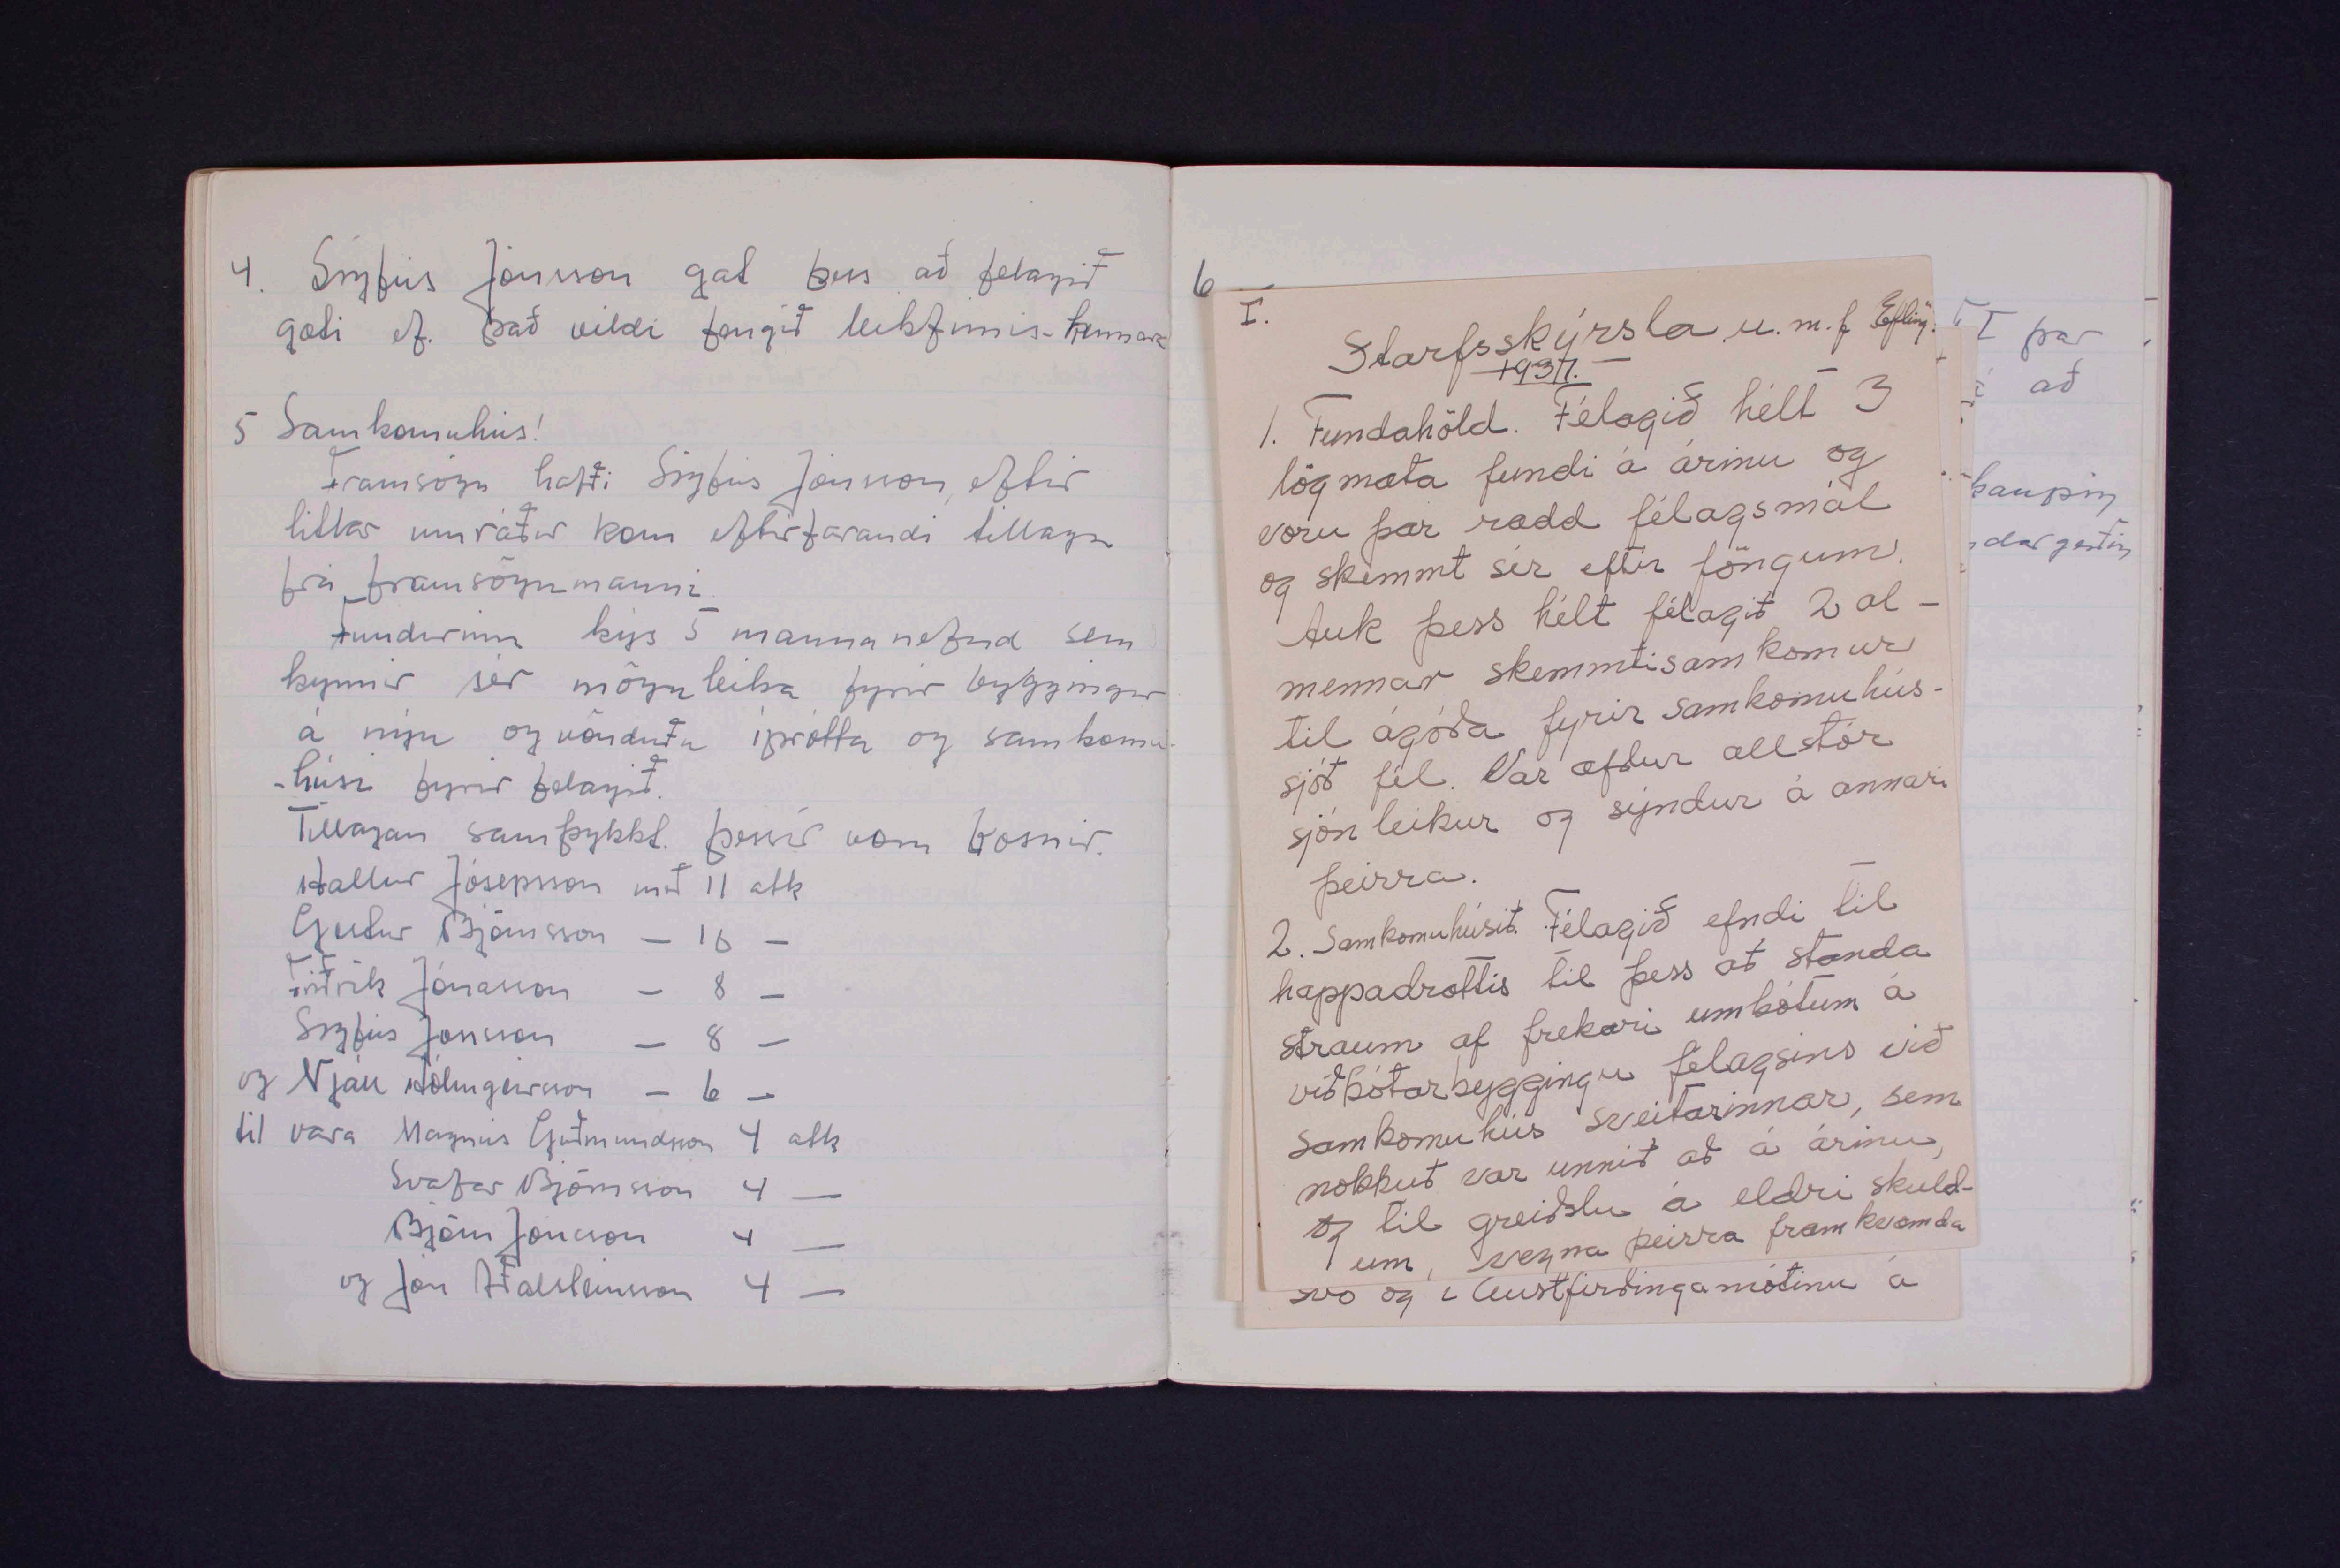 4. Sigfús Jónsson gat þess að félagið
gæti ef það vildi fengið leikfimis-kennara
5 Samkomuhús!
Framsögu hafði Sigfús Jónsson, eftir
litlar umræður kom eftirfarandi tillaga
frá framsögumanni.
Fundurinn kýs 5 manna nefnd sem
kynnir sér möguleika fyrir byggingu
á nýju og vönduðu íþrótta og samkomu-
-húsi fyrir félagið.
Tillagan samþykkt. Þessir voru kosnir.
Hallur Jósepsson með 11 atk
Björnsson — 16 —
Friðrik Jónasson — 8 —
Sigfús Jónsson — 8 —
og Njáll Hólmgeirsson — 6 —
til vara Magnús Guðmundsson 4 atk
Svafar Björnsson 4 —
Björn Jónsson 4 —
og Jón Aðalsteinsson 4 —
6
I.
Starfsskýrsla u.m.f. Efling.
1937.
1. Fundahöld. Félagið hélt 3
lögmæta fundi á árinu og
voru þar rædd félagsmál
og skemmt sér eftir föngum.
Auk þess hélt félagið 2 al-
mennar skemmtisamkomur
til ágóða fyrir samkomuhús-
sjóð fél. Var æfður allstór
sjónleikur og sýndur á annari
þeirra.
2. Samkomuhúsið. Félagið efndi til
happadrættis til þess að standa
straum af frekari umbótum á
viðbótarbyggingu félagsins við
samkomuhús sveitarinnar, sem
nokkuð var unnið að á árinu,
og til greiðslu á eldri skuld-
um, vegna þeirra framkvæmda
svo og í Austfirðingamótinu á
þar
að
kaupin